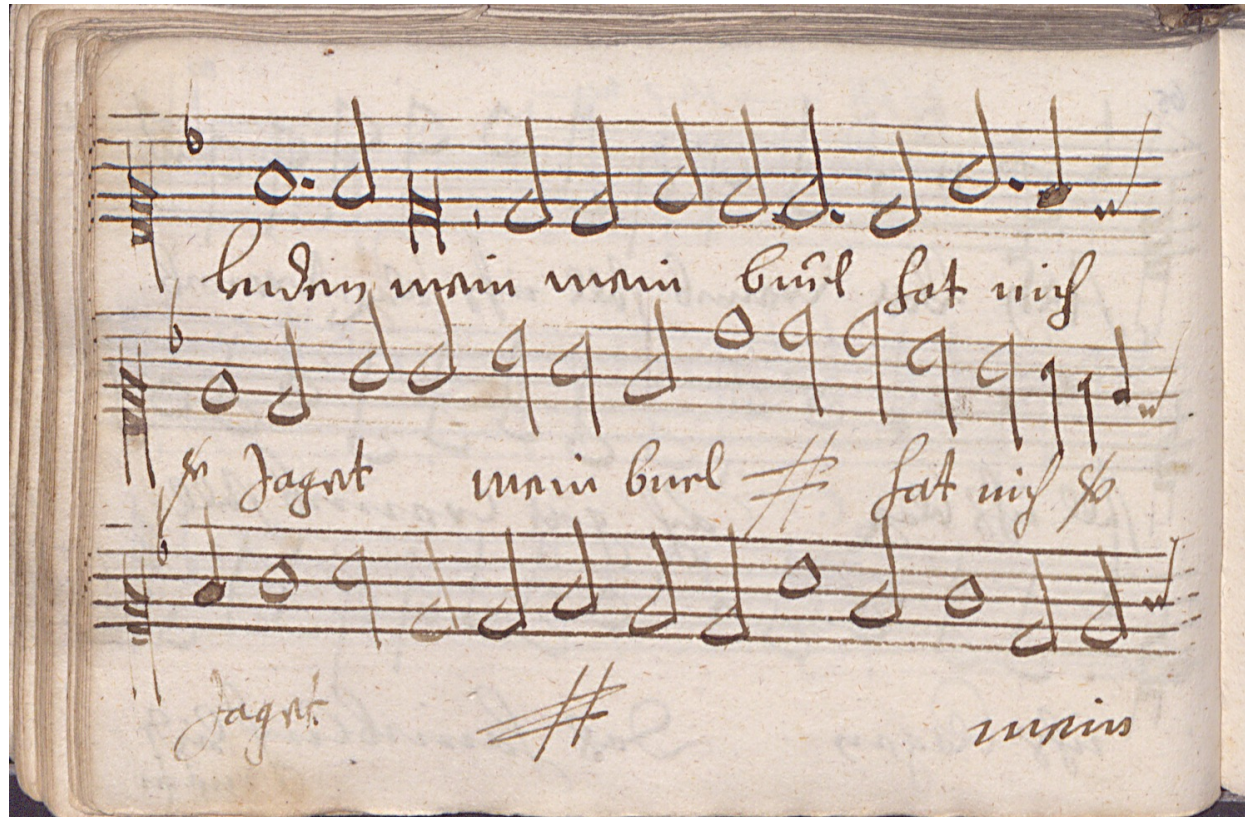 lenden mein mein buel hat mich
Jaget mein buel hat mich
Jaget mein